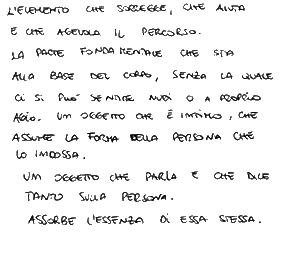 L'ELEMENTO CHE SORREGGE, CHE AIUTA
E CHE AGEVOLA IL PERCORSO.
LA PARTE FONDAMENTALE CHE STA
ALLA BASE DEL CORPO, SENZA LA QUALE
CI SI PUÒ SENTIRE NUDI O A PROPRIO
AGIO. UN OGGETTO CHE È INTIMO, CHE
ASSUME LA FORMA DELLA PERSONA CHE
LO INDOSSA.
UN OGGETTO CHE PARLA E CHE DICE
TANTO SULLA PERSONA.
ASSORBE L'ESSENZA DI ESSA STESSA.